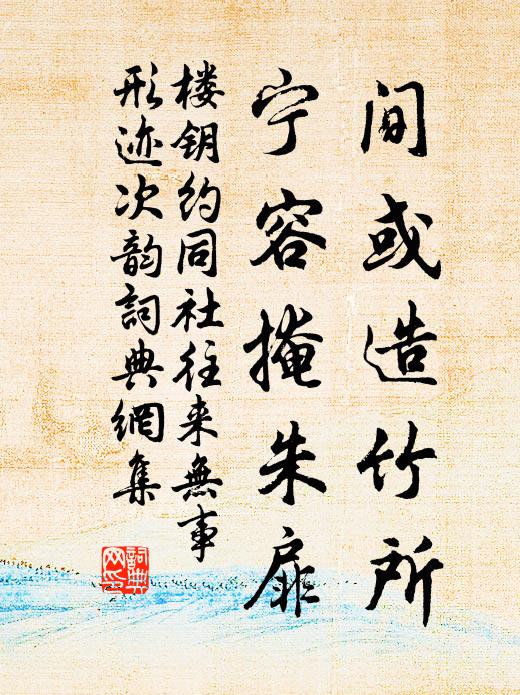 间或造竹所
宁容掩朱扉
楼钥约同社往来無事
形迹次韵詞典網集
詞典
网印